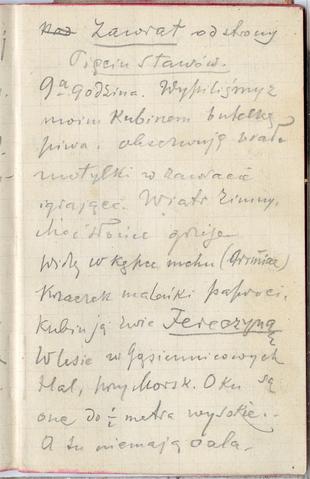 Zawrat od strony
Pięciu Stawów.
9ᵃ godzina. Wypiliśmy z
moim Kubinem butelkę
piwa. obserwuję białe
motylki w zawacie
igrające. Wiatr zimny,
choć słońce grzeje
Widzę w kępce mchu (Grimiae)
Krzaczek maleńki paproci,
Kubin ją zwie Fereczyną
W lesie w Gąsienicowych
Hal, przy Morsk. Oku są
one do ½ metra wysokie.
A tu nie mają cala.